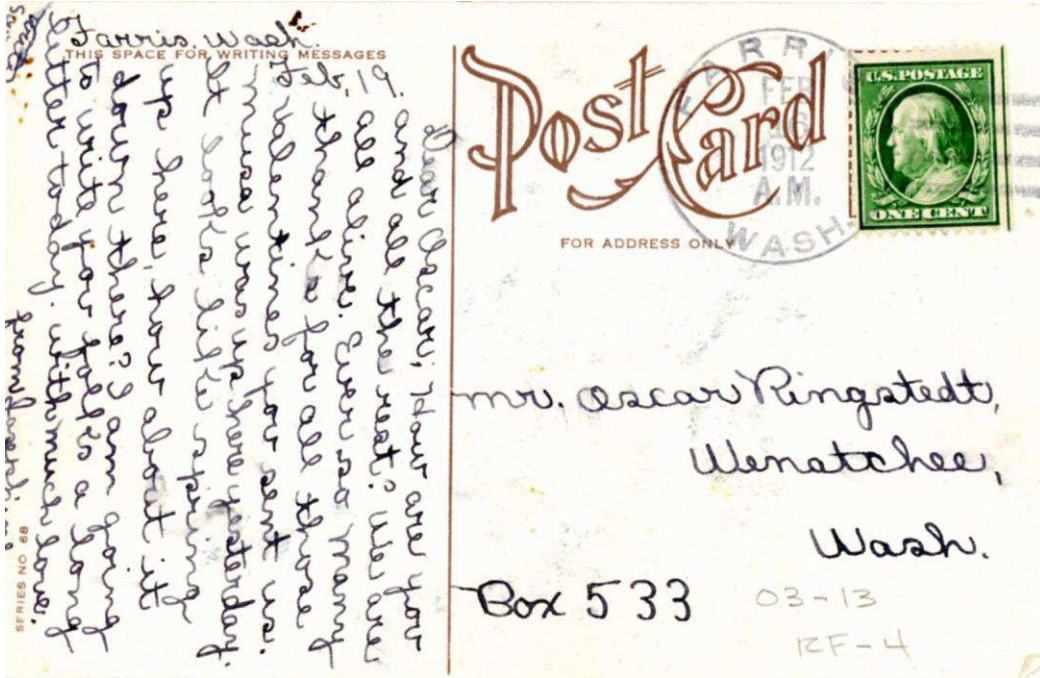 Farris, Wash.
THIS SPACE FOR WRITING MESSAGES
Feb, 19.
Dear Oscar; How are you
and all the rest? We are
all alive. Ever so many
thanks for all those
valentines you sent us.
muse was up here yesterday.
It looks like spring
up here, how about it
down there? I am going
to write you folks a long
letter today. with much love.
from
SERIES NO 68
POST CARD
FOR ADDRESS ONLY
FARRIS
FEB
16
1912
A.M.
WASH.
U.S. POSTAGE
ONE CENT
mr. Oscar Ringstedt,
Wenatchee,
Wash.
Box 533
03-13
RF-4